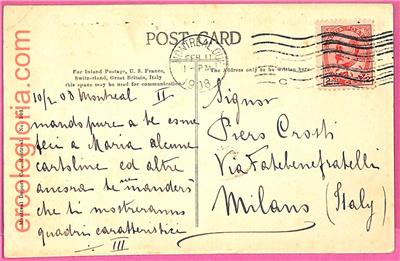 POST CARD
For Inland Postage, U. S. France,
Switzerland, Great Britain, Italy
this space may be used for communication
The Address only to be written here
MONTREAL, QUE.
FEB 11
1 - PM
1908
10/2 08 Montreal II
mando pure a te come
feci a Maria alcune
cartoline ed altre
ancora te ne manderò
che ti mostreranno
quadri caratteristici
÷ III
Signor
Piero Crosti
Via Fatebenefratelli
Milano (Italy)
ercolegloria.com